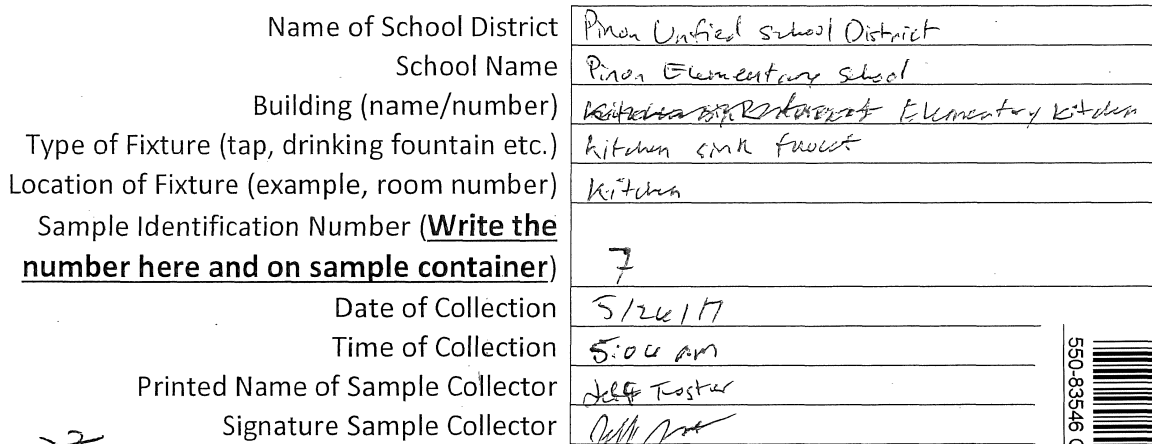 Name of School District Pinon Unfied School District
School Name Pinon Elementary School
Building (name/number) Elementary Kitchen
Type of Fixture (tap, drinking fountain etc.) kitchen sink faucet
Location of Fixture (example, room number) Kitchen
Sample Identification Number (Write the
number here and on sample container) 7
Date of Collection
Time of Collection
Printed Name of Sample Collector Jeff Foster
Signature Sample Collector
550-83546